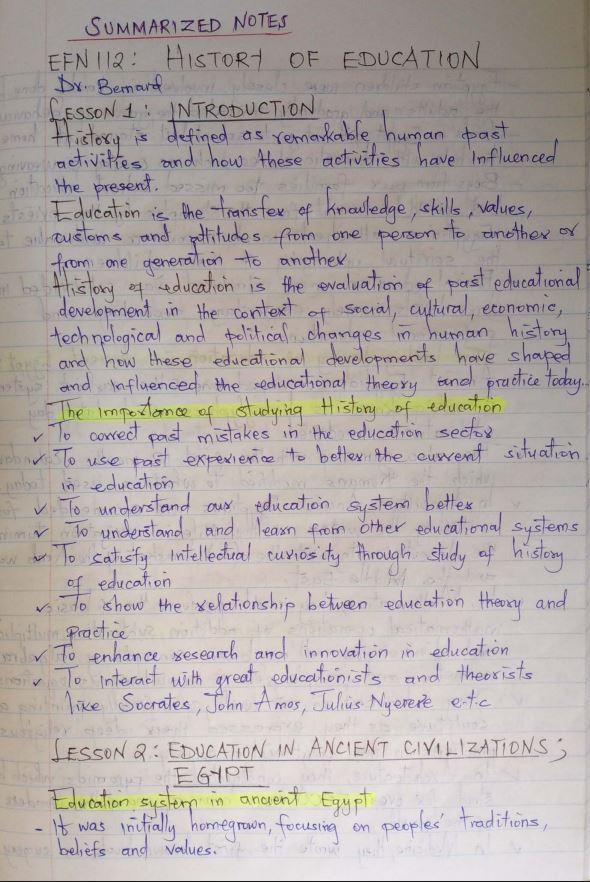 SUMMARIZED NOTES
EFN 112: HISTORY OF EDUCATION
Dr. Bernard
LESSON 1: INTRODUCTION
History is defined as remarkable human past
activities and how these activities have Influenced
the present.
Education is the transfer of knowledge, skills, values,
customs and attitudes from one person to another or
from one generation to another
History of education is the evaluation of past educational
development in the context of social, cultural, economic,
technological and political changes in human history
and how these educational developments have shaped
and Influenced the educational theory and practice today.
The importance of studying History of education
✓ To correct past mistakes in the education sector
✓ To use past experience to better the current situation
in education
✓ To understand our education system better
✓ To understand and learn from other educational systems
✓ To satisfy intellectual curiosity through study of history
of education
✓ To show the relationship between education theory and
practice
✓ To enhance research and innovation in education
✓ To Interact with great educationists and theorists
like Socrates, John Amos, Julius Nyerere e.t.c
LESSON 2: EDUCATION IN ANCIENT CIVILIZATIONS;
EGYPT
Education system in ancient Egypt
- It was initially homegrown, focusing on peoples' traditions,
beliefs and values.